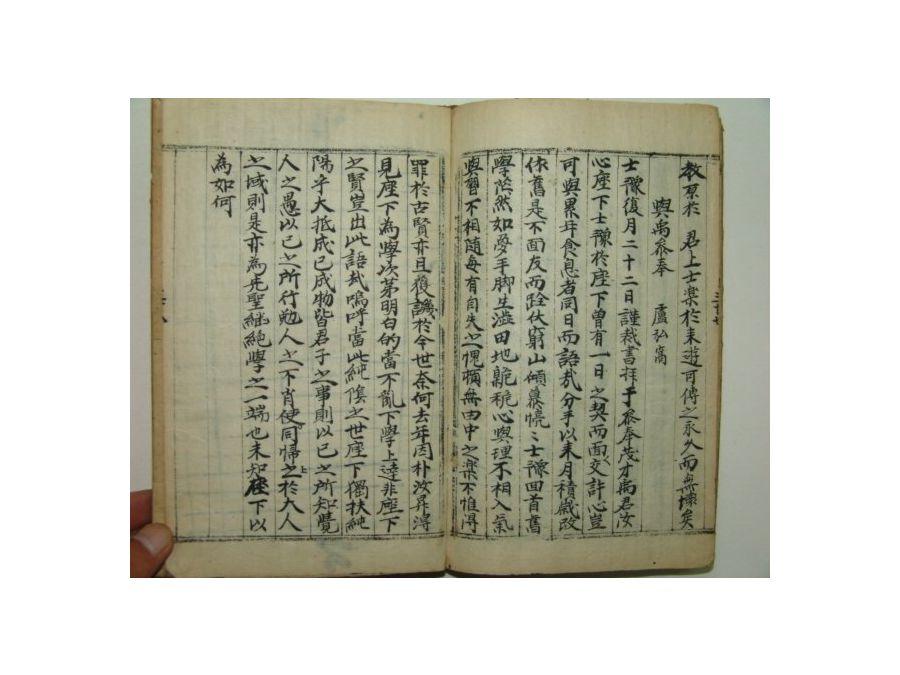 教累於 君上士樂於來遊可傳之永久而無壞矣
與禹參奉 盧弘窩
士豫復月二十二日謹裁書拜手參奉茂才禹君汝
心座下士豫於座下曾有一日之契而面交許心豈
可與累年食息者同日而語哉分手以來月積歲改
依舊是不面友而跧伏窮山傾慕憧〻士豫回首舊
學茫然如夢手脚生澁田地虩䅔心與理不相入氣
與習不相隨每有自失之愧頓無由中之樂不惟得
罪於古賢亦且獲譏於今世奈何去年因朴汝昇得
見座下為學次第明白的當不亂下學上達非座下
之賢豈出此語哉嗚呼當此純陰之世座下獨扶純
陽乎大抵成己成物皆君子之事則以己之所知覺
人之愚以己之所行勉人之不肖使同歸之於大人
上
之域則是亦為先聖継絕學之一端也未知座下以
為如何